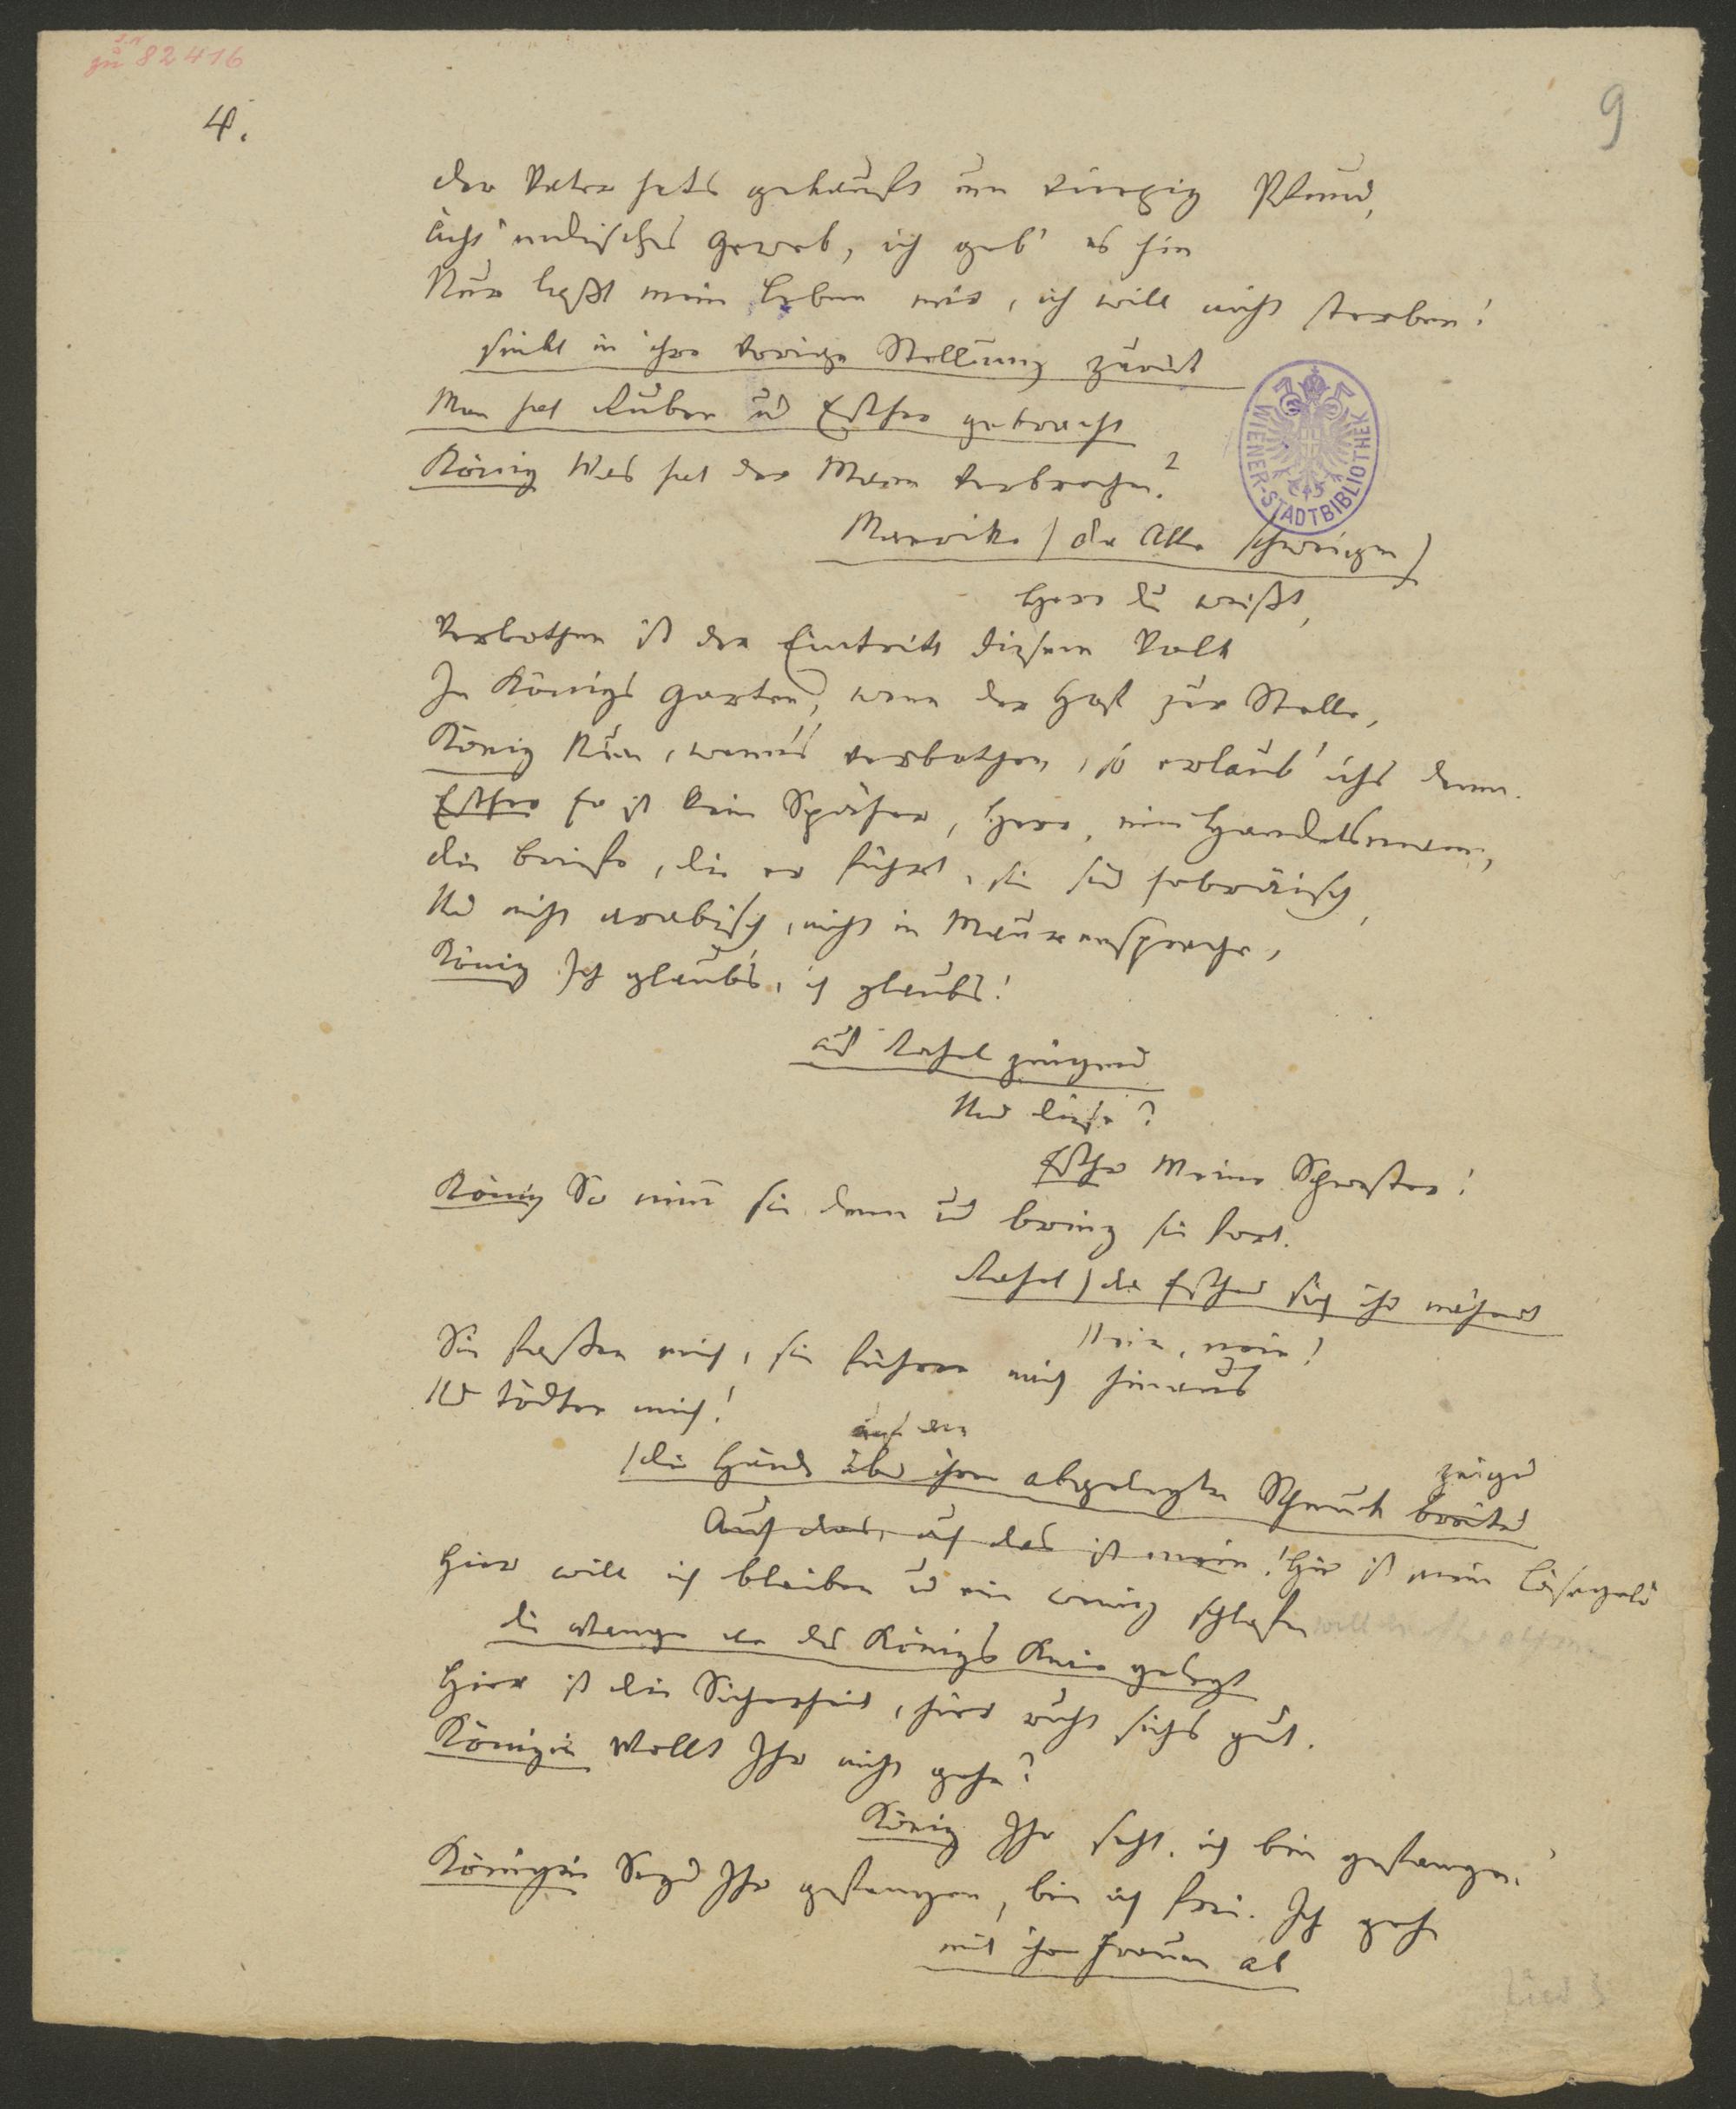 J.N.
zu 82416
4.
9
der Vater hats gekauft um vierzig Pfund,
Ächt indisches Geweb, ich geb' es hin
Nur laßt mein Leben mir, ich will nicht sterben!
sinkt in ihre vorige Stellung zurük
Man hat Ruben ud Esther gebracht
König Was hat der Mann verbrochen?
Manrike / da Alle schweigen /
Herr du weißt,
Verbothen ist der Eintritt diesem Volk
In Königs Garten, wenn der Hof zur Stelle,
König Nun, wenn's verbothen, so erlaub' ichs denn.
Esther Er ist kein Späher, Herr, ein Handelsmann,
die Briefe, die er führt, sie sind hebräisch,
Und nicht arabisch, nicht in Maurensprache,
König Ich glaub's, ich glaubs!
auf Rahel zeigend
Und diese?
Esther Meine Schwester!
König So nimm sie denn ud bring sie fort.
Rahel / da Esther sich ihr nähert
Nein, nein!
Sie fassen mich, sie führen mich hinaus
Und tödten mich!
auf den
/ die Hände über ihren abgelegten Schmuck breitend
zeigend
Auf das, auf das ist mein! Hier ist mein Lösegeld
Hier will ich bleiben ud ein wenig schlafen
die Wange an des Königs Knie gelegt
Hier ist die Sicherheit, hier ruht sichs gut.
Königin Wollt Ihr nicht gehn?
König Ihr seht, ich bin gefangen.
Königin Seyd Ihr gefangen, bin ich frei. Ich gehe
mit ihren Frauen ab
WIENER-STADTBIBLIOTHEK